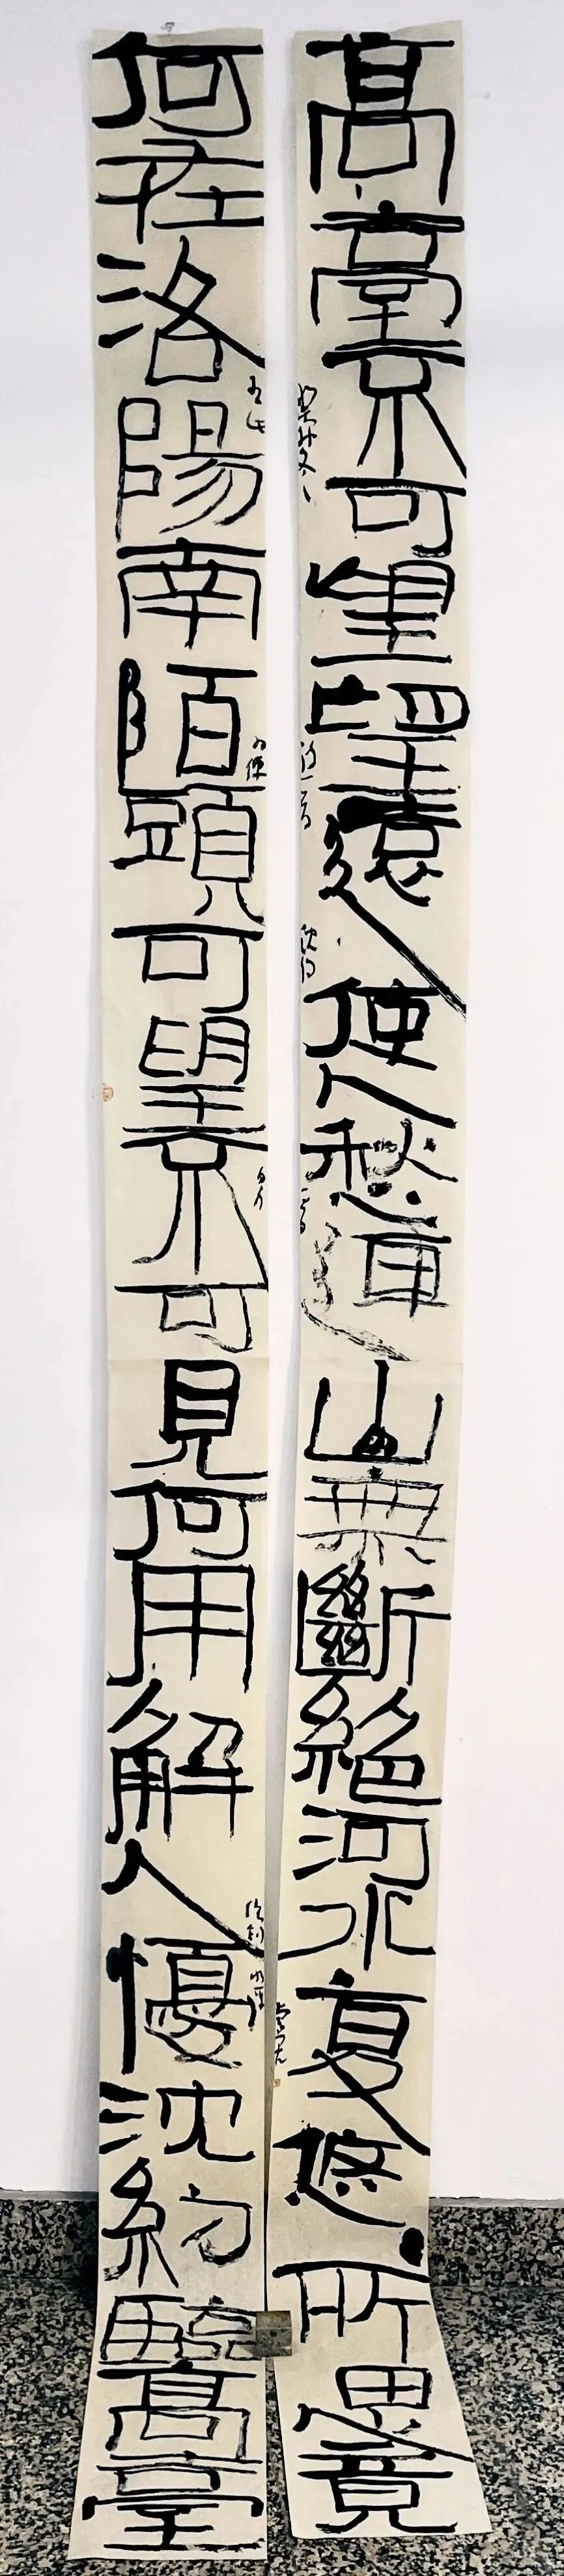 高臺不可望望遠使人愁連山無斷絕河水复悠々所思竟
何在洛陽南陌頭可望不可見何用解人懮沈約臨高臺